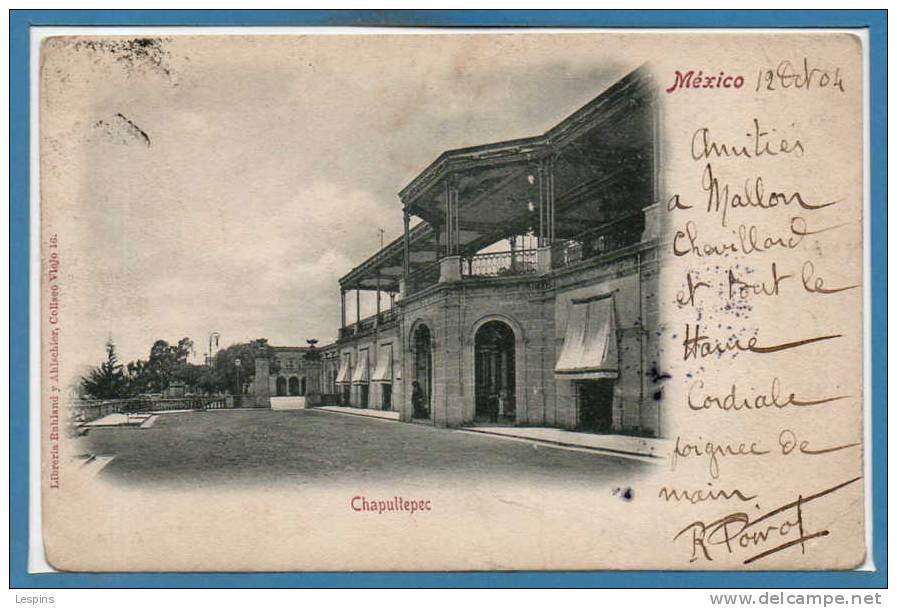 México 12 Oct 04
Amitiés
a Mallon
Chevillard
et tout le
Havre
Cordiale
poignee de
main
R Poirot
Chapultepec
Librería Ruhland y Ahlschier, Coliseo Viejo 16.
Lespins
www.delcampe.net